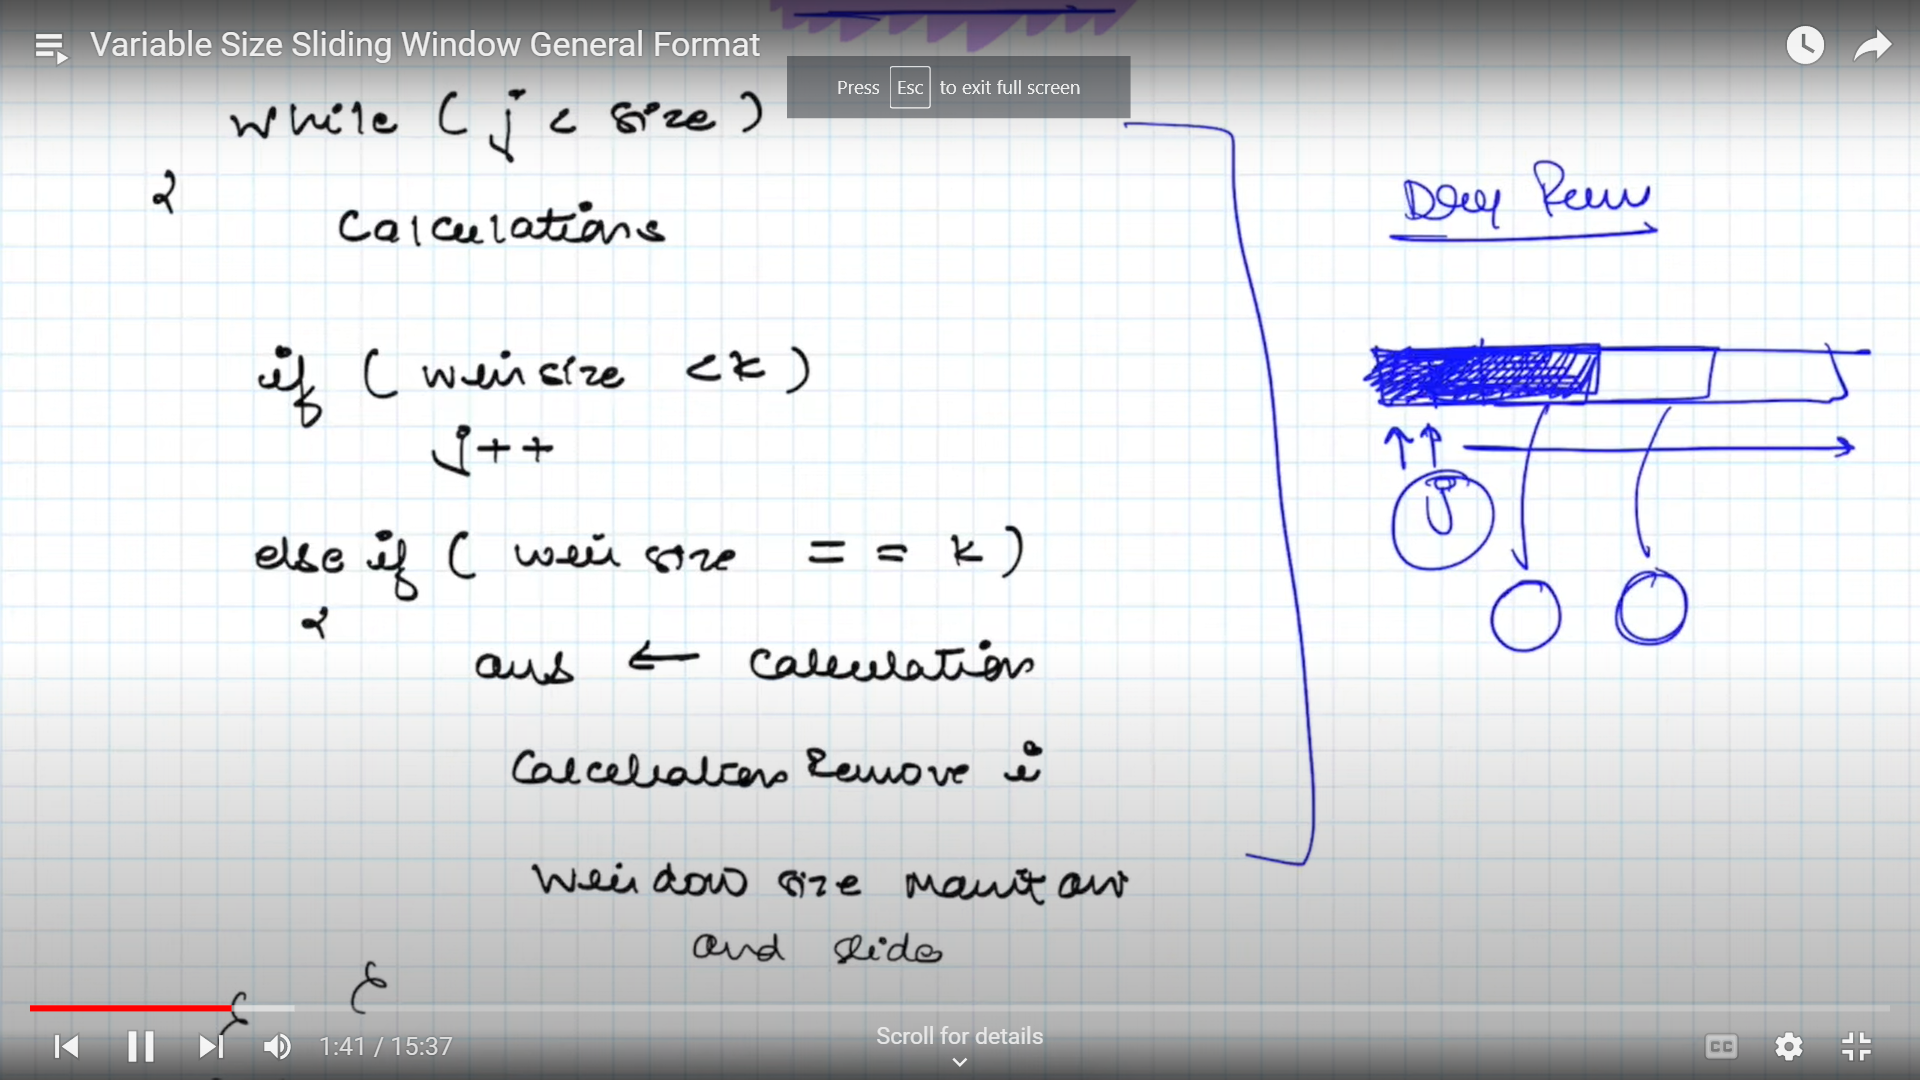 Variable Size Sliding Window General Format
Press Esc to exit full screen
while ( j < size )
{
Calculations
if ( win size < k )
j++
else if ( win size == k )
{
ans ← Calculation
Calculation Remove i
Window size maintain
and slide
}
}
Dry Run
1:41 / 15:37
Scroll for details
CC